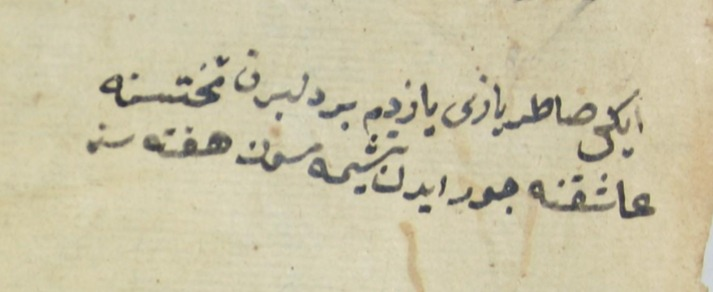 ايكى صاطر يازى يازدم بر دلبرن تختسنه
عاشقنه جور ايدن يتشيمه سون هفته سنه